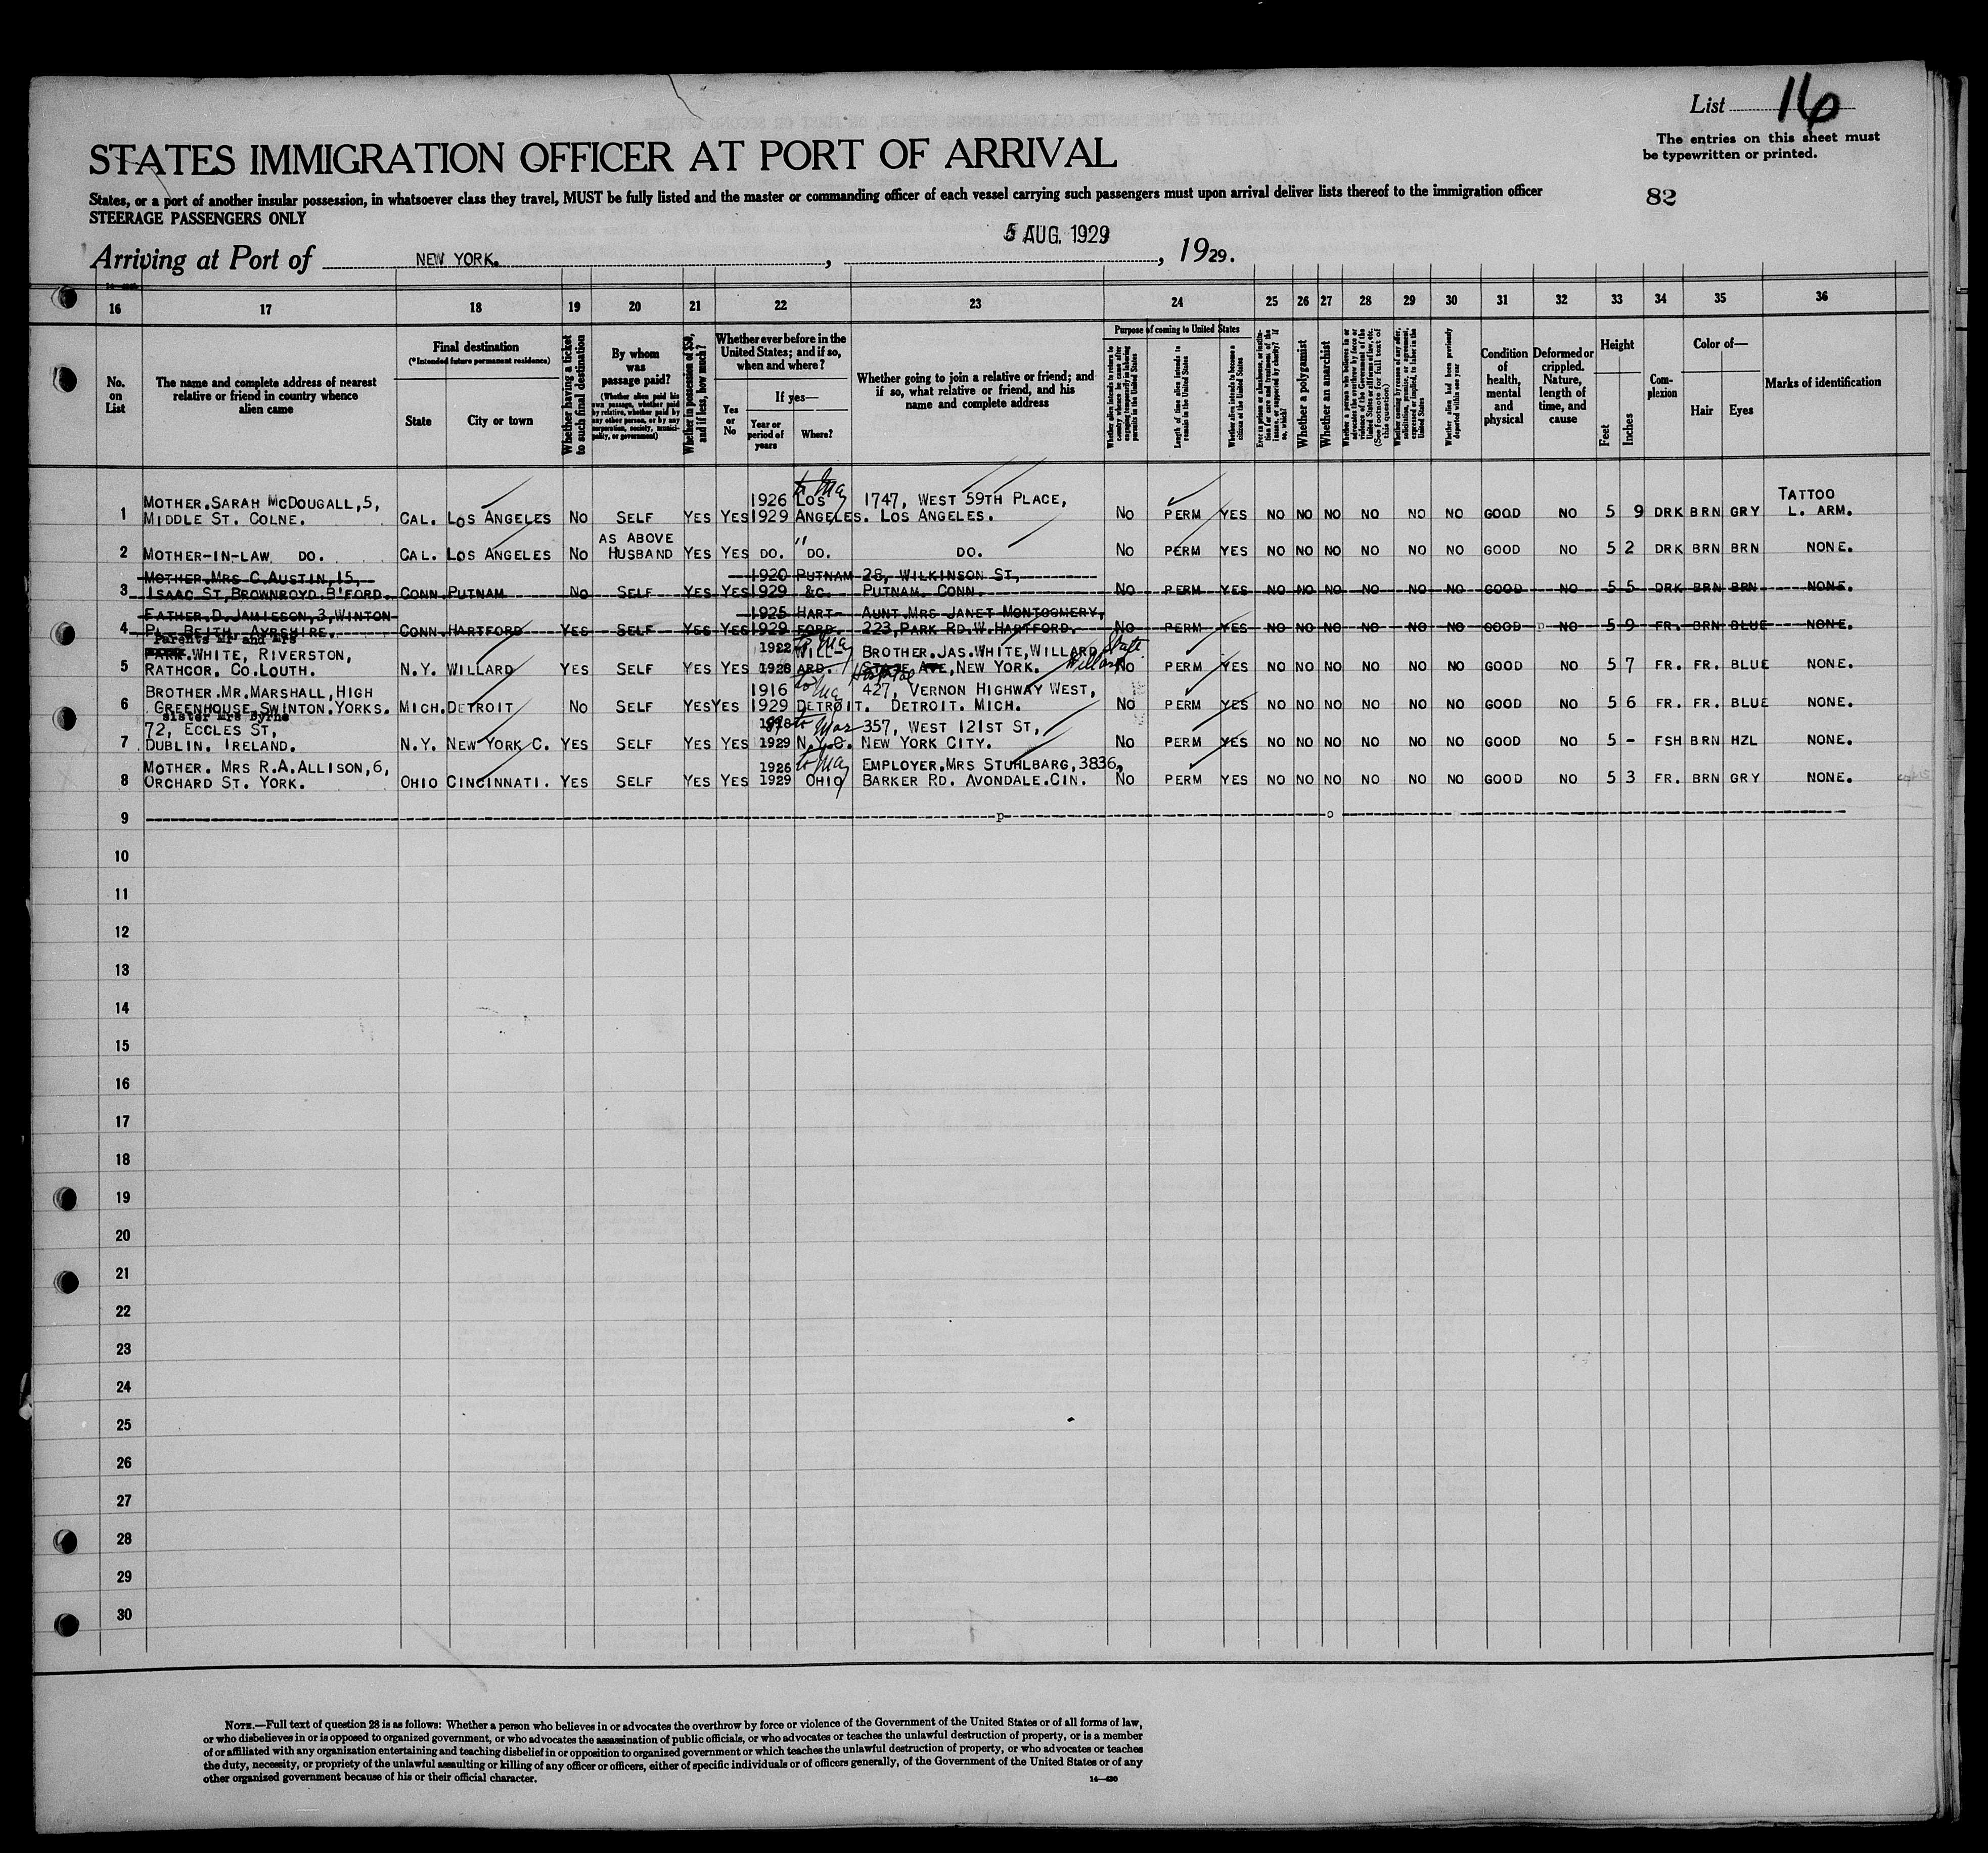 List 16
The entries on this sheet must
be typewritten or printed.
STATES IMMIGRATION OFFICER AT PORT OF ARRIVAL
82
States, or a port of another insular possession, in whatsoever class they travel, MUST be fully listed and the master or commanding officer of each vessel carrying such passengers must upon arrival deliver lists thereof to the immigration officer
STEERAGE PASSENGERS ONLY
5 AUG. 1929
Arriving at Port of NEW YORK. , , 1929.
16 17 18 19 20 21 22 23 24 25 26 27 28 29 30 31 32 33 34 35 36
No.
on
List
The name and complete address of nearest
relative or friend in country whence
alien came
Final destination
(*Intended future permanent residence)
State
City or town
Whether having a ticket
to such final destination
By whom
was
passage paid?
(Whether alien paid his
own passage, whether paid
by relative, whether paid by
any other person, or by any
corporation, society, munici-
pality, or government)
Whether in possession of $50,
and if less, how much?
Whether ever before in the
United States; and if so,
when and where?
Yes
or
No
If yes—
Year or
period of
years
Where?
Whether going to join a relative or friend; and
if so, what relative or friend, and his
name and complete address
Purpose of coming to United States
Whether alien intends to return to
country whence he came after
engaging temporarily in laboring
pursuits in the United States
Length of time alien intends to
remain in the United States
Whether alien intends to become a
citizen of the United States
Ever in prison or almshouse, or institu-
tion for care and treatment of the
insane, or supported by charity? If
so, which?
Whether a polygamist
Whether an anarchist
Whether a person who believes in or
advocates the overthrow by force or
violence of the Government of the
United States or all forms of law, etc.
(See footnote for full text of
this question)
Whether coming by reason of any offer,
solicitation, promise, or agreement,
expressed or implied, to labor in the
United States
Whether alien had been previously
deported within one year
Condition
of
health,
mental
and
physical
Deformed or
crippled.
Nature,
length of
time, and
cause
Height
Feet
Inches
Com-
plexion
Color of—
Hair
Eyes
Marks of identification
MOTHER.SARAH MCDOUGALL,5, 1926 LOS 1747, WEST 59TH PLACE, TATTOO
1 MIDDLE ST. COLNE. CAL. LOS ANGELES NO SELF YES YES 1929 ANGELES. LOS ANGELES. NO PERM YES NO NO NO NO NO NO GOOD NO 5 9 DRK BRN GRY L. ARM.
AS ABOVE
2 MOTHER-IN-LAW DO. CAL. LOS ANGELES NO HUSBAND YES YES DO. " DO. DO. NO PERM YES NO NO NO NO NO NO GOOD NO 5 2 DRK BRN BRN NONE.
MOTHER.MRS C.AUSTIN,15, 1920 PUTNAM 28, WILKINSON ST,
3 ISAAC ST,BROWNROYD.B'FORD. CONN PUTNAM NO SELF YES YES 1929 &C. PUTNAM. CONN. NO PERM YES NO NO NO NO NO NO GOOD NO 5 5 DRK BRN BRN NONE.
FATHER.D.JAMIESON,3,WINTON 1925 HART- AUNT.MRS JANET MONTGOMERY,
4 PL. BEITH. AYRSHIRE. CONN. HARTFORD YES SELF YES YES 1929 FORD. 223,PARK RD.W.HARTFORD. NO PERM YES NO NO NO NO NO NO GOOD NO 5 9 FR. BRN BLUE NONE.
Parents Mr and Mrs
WHITE, RIVERSTON, 1922 WILL- BROTHER.JAS.WHITE,WILLARD State
5 RATHCOR. CO.LOUTH. N.Y. WILLARD YES SELF YES YES 1928 ARD. STATE AVE,NEW YORK. Hospital Willard NO PERM YES NO NO NO NO NO NO GOOD NO 5 7 FR. FR. BLUE NONE.
BROTHER.MR.MARSHALL,HIGH 1916 427, VERNON HIGHWAY WEST,
6 GREENHOUSE.SWINTON.YORKS. MICH. DETROIT NO SELF YES YES 1929 DETROIT. DETROIT. MICH. NO PERM YES NO NO NO NO NO NO GOOD NO 5 6 FR. FR. BLUE NONE.
sister Mrs Byrne
72, ECCLES ST, to Mar 357, WEST 121ST ST,
7 DUBLIN. IRELAND. N.Y. NEW YORK C. YES SELF YES YES 1929 N.Y.C. NEW YORK CITY. NO PERM YES NO NO NO NO NO NO GOOD NO 5 - FSH BRN HZL NONE.
MOTHER. MRS R.A.ALLISON,6, 1926 EMPLOYER.MRS STUHLBARG,3836,
8 ORCHARD ST. YORK. OHIO CINCINNATI. YES SELF YES YES 1929 OHIO BARKER RD. AVONDALE.CIN. NO PERM YES NO NO NO NO NO NO GOOD NO 5 3 FR. BRN GRY NONE.
9 p o
10
11
12
13
14
15
16
17
18
19
20
21
22
23
24
25
26
27
28
29
30
NOTE.—Full text of question 28 is as follows: Whether a person who believes in or advocates the overthrow by force or violence of the Government of the United States or of all forms of law,
or who disbelieves in or is opposed to organized government, or who advocates the assassination of public officials, or who advocates or teaches the unlawful destruction of property, or is a member
of or affiliated with any organization entertaining and teaching disbelief in or opposition to organized government or which teaches the unlawful destruction of property, or who advocates or teaches
the duty, necessity, or propriety of the unlawful assaulting or killing of any officer or officers, either of specific individuals or of officers generally, of the Government of the United States or of any
other organized government because of his or their official character.
14—430